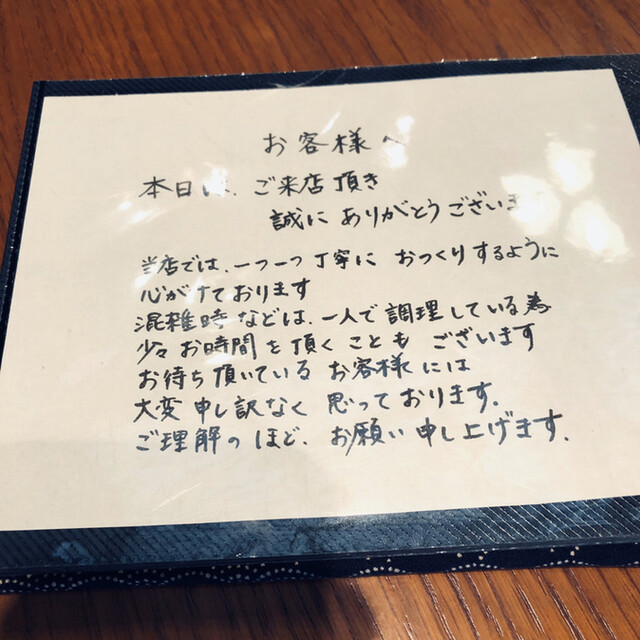 お客様へ
本日は、ご来店頂き
誠にありがとうございま
当店では、一つ一つ丁寧に おつくりするように
心がけております
混雑時などは、一人で調理している為
少々お時間を頂くことも ございます
お待ち頂いている お客様には
大変申し訳なく 思っております.
ご理解のほど、お願い申し上げます.